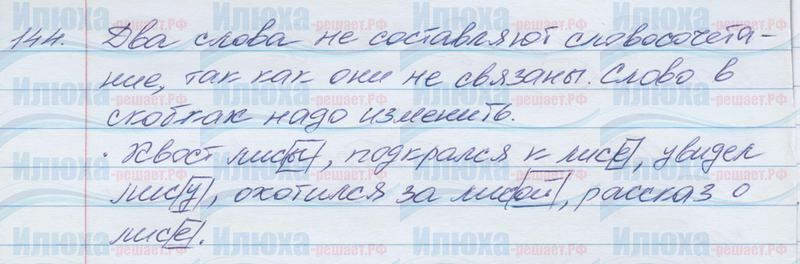 144. Два слова не составляют словосочета-
ние, так как они не связаны. Слово в
скобках надо изменить.
· Хвост лисы, подкрался к лисе, увидел
лису, охотился за лисой, рассказ о
лисе.